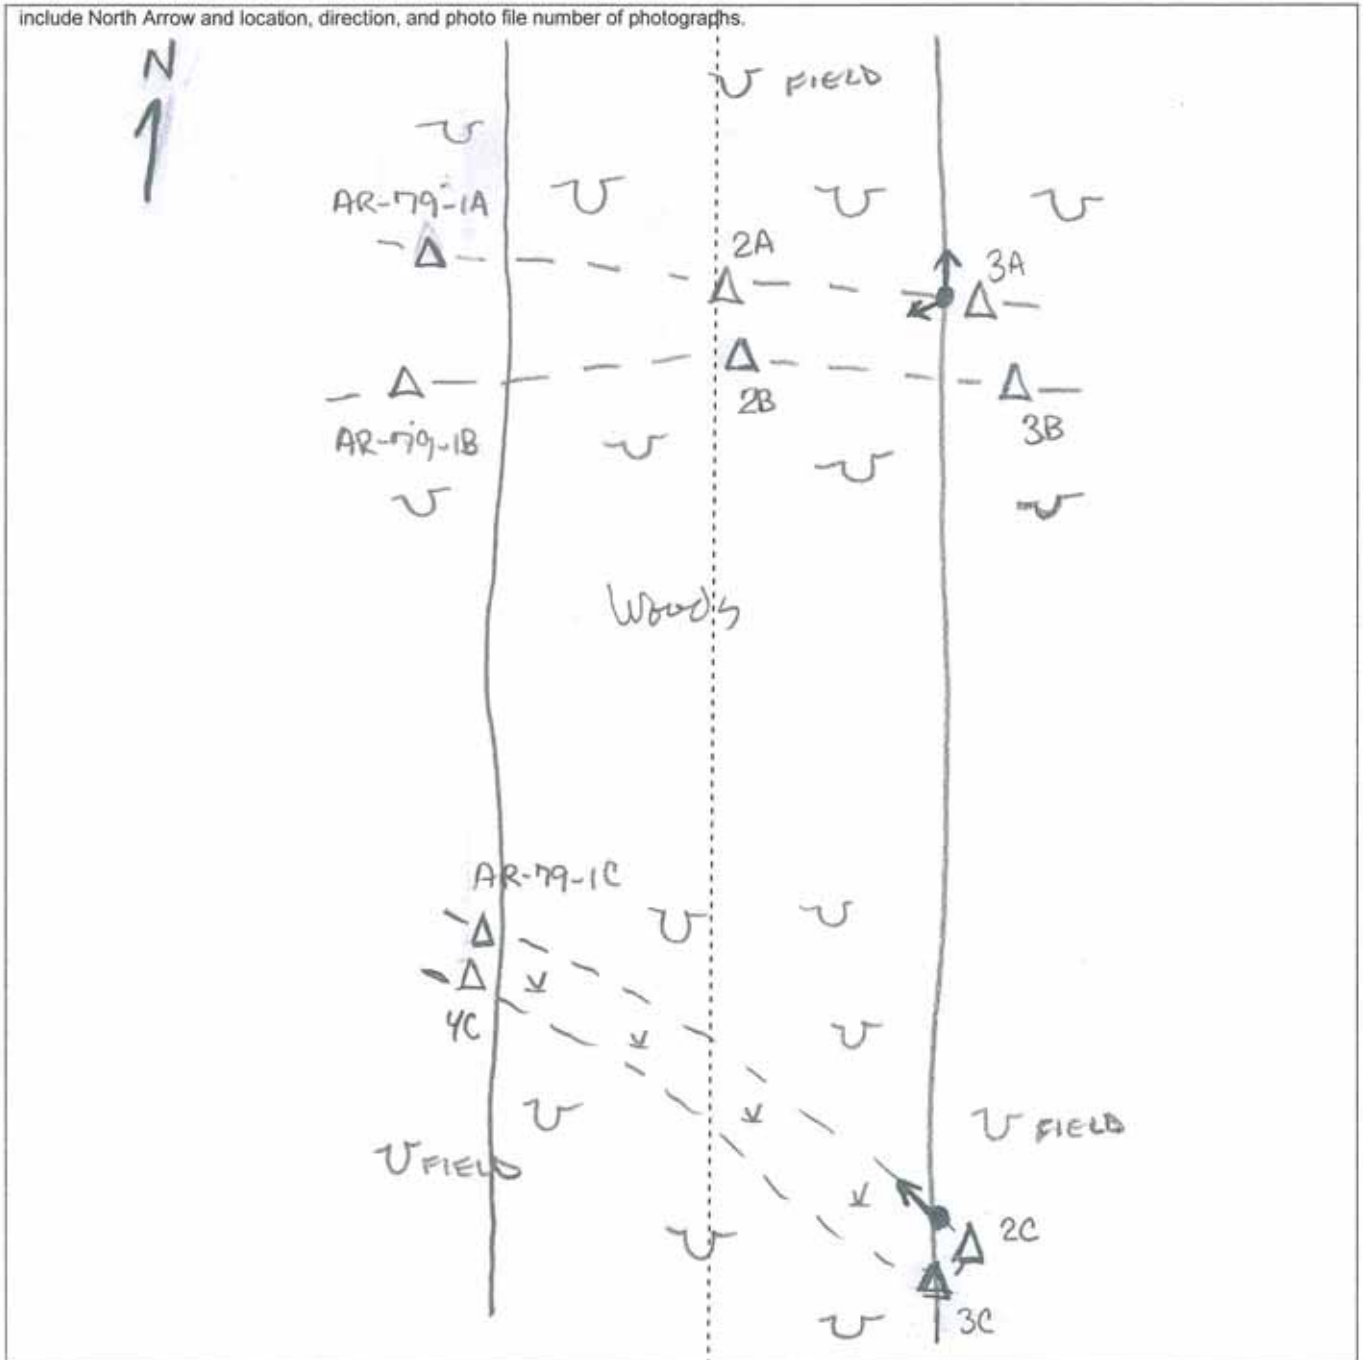 include North Arrow and location, direction, and photo file number of photographs.
N
FIELD
AR-79-1A
2A
3A
AR-79-1B
2B
3B
Woods
AR-79-1C
4C
FIELD
FIELD
2C
3C